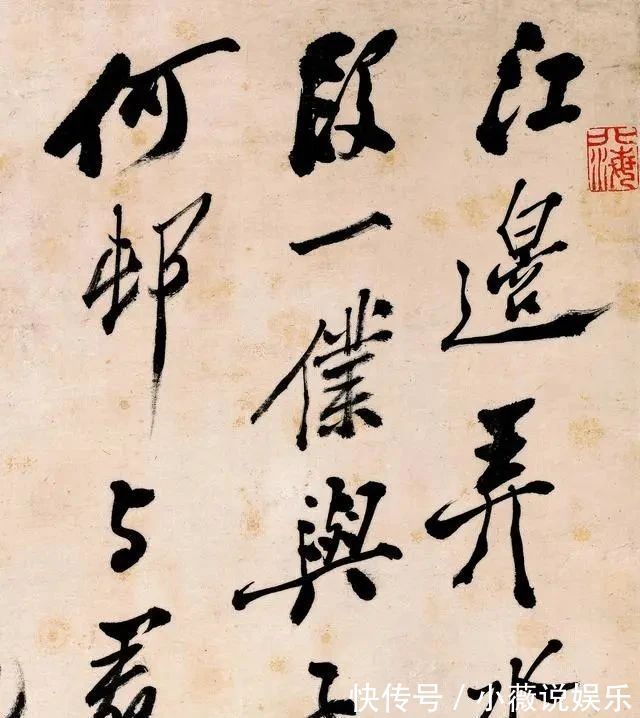 江邊弄水
段一僕與子
何邨与君
北海
快传号／小薇说娱乐